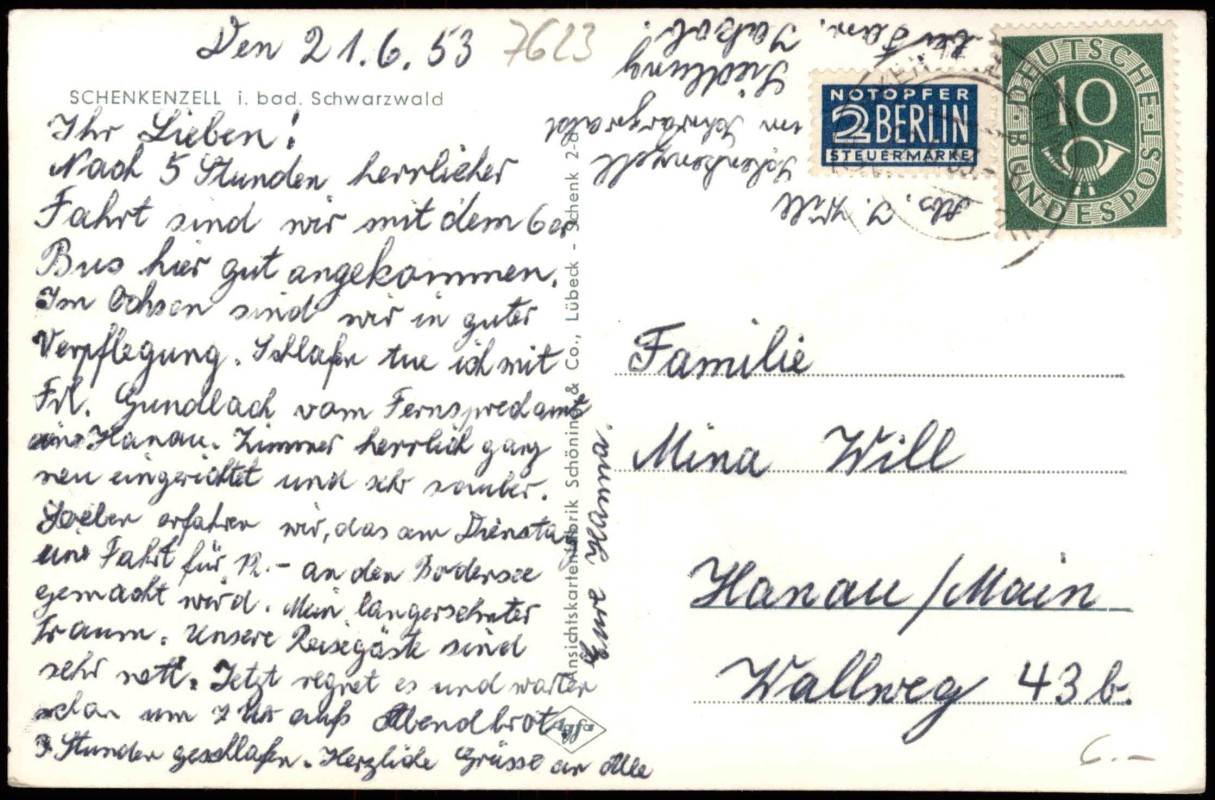 Den 21.6.53
7623
SCHENKENZELL i. bad. Schwarzwald
Ihr Lieben!
Nach 5 Stunden herrlicher
Fahrt sind wir mit dem 6er
Bus hier gut angekommen.
Im Ochsen sind wir in guter
Verpflegung. Schlafen tue ich mit
Frl. Gundlach vom Fernsprechamt
aus Hanau. Zimmer herrlich ganz
neu eingerichtet und sehr sauber.
Soeben erfahren wir, das am Dienstag
eine Fahrt für 12.- an den Bodensee
gemacht wird. Mein langersehnter
Traum. Unsere Reisegäste sind
sehr nett. Jetzt regnet es und warten
schon um 7 Uhr aufs Abendbrot.
3 Stunden geschlafen. Herzliche Grüsse an Alle
Eure Hanni.
Ansichtskartenfabrik Schöning & Co., Lübeck - Schenk 2
Abs. J. Will
Schenkenzell
im Schwarzwald
Siedlung
bei Fam. Jakob!
NOTOPFER
2 BERLIN
STEUERMARKE
DEUTSCHE
BUNDESPOST
10
Familie
Mina Will
Hanau/Main
Wallweg 43b.
6.-